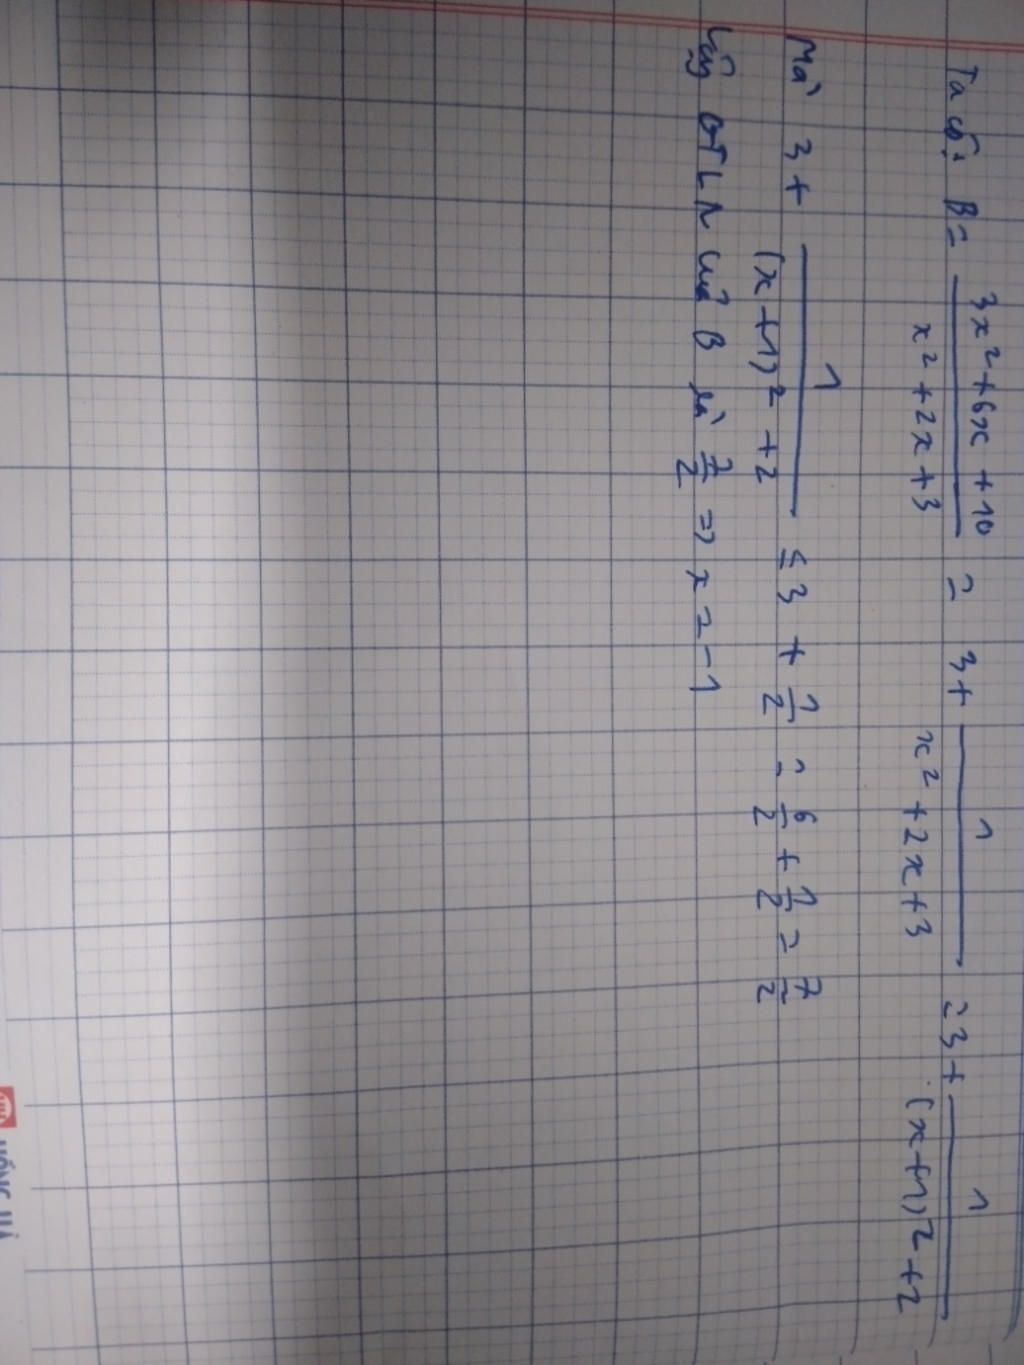 Ta có: B = \frac{3x^2+6x+10}{x^2+2x+3} = 3 + \frac{1}{x^2+2x+3} = 3 + \frac{1}{(x+1)^2+2}
Mà 3 + \frac{1}{(x+1)^2+2} ≤ 3 + \frac{1}{2} = \frac{6}{2} + \frac{1}{2} = \frac{7}{2}
Vậy GTLN của B là \frac{7}{2} => x = -1
HỒNG HÀ